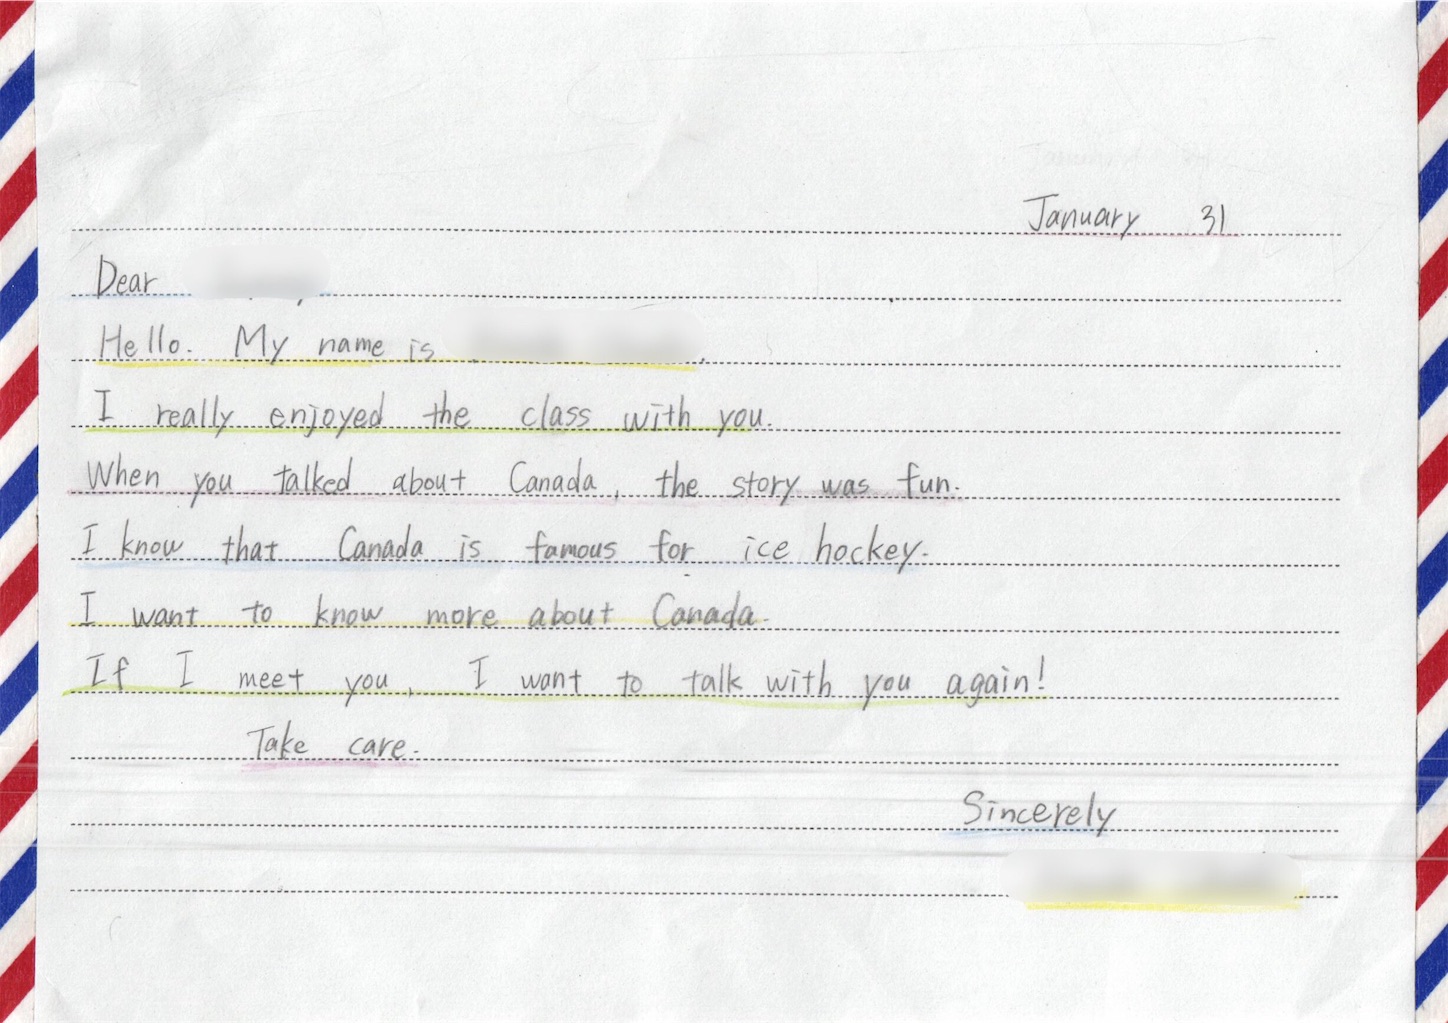 January 31
Dear ,
Hello. My name is .
I really enjoyed the class with you.
When you talked about Canada, the story was fun.
I know that Canada is famous for ice hockey.
I want to know more about Canada.
If I meet you, I want to talk with you again!
Take care.
Sincerely